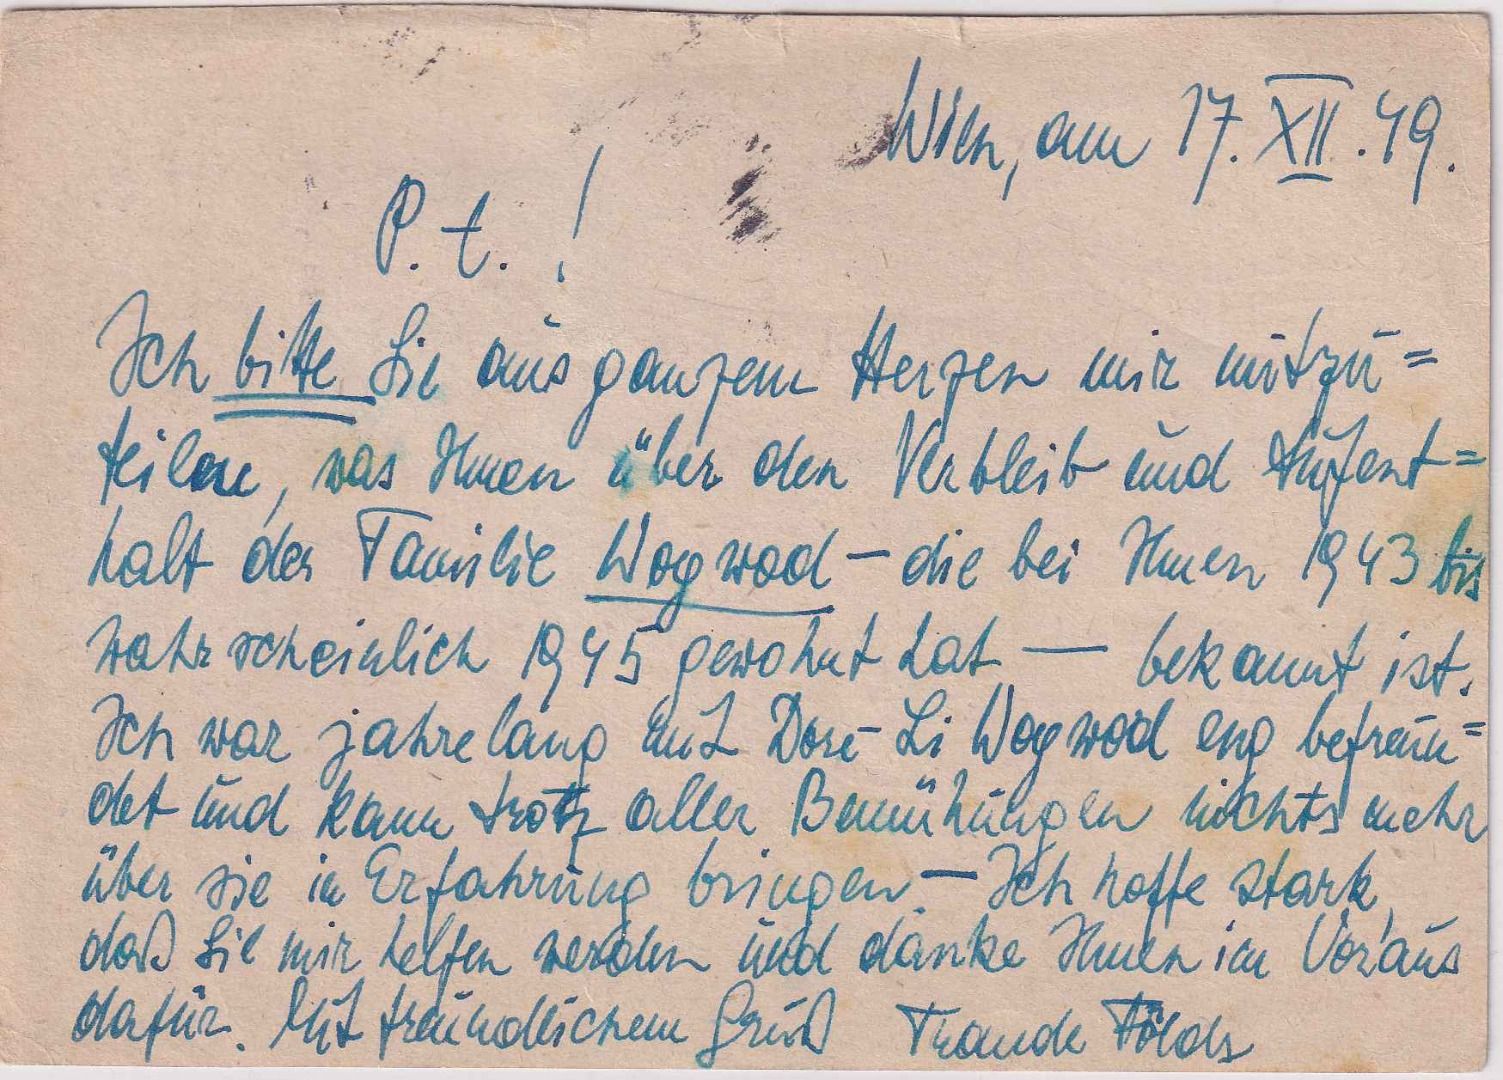 Wien, am 17. XII. 49.
P. t. !
Ich bitte Sie aus ganzem Herzen mir mitzu=
teilen, was Ihnen über den Verbleib und Aufent=
halt der Familie Wogwod – die bei Ihnen 1943 bis
wahrscheinlich 1945 gewohnt hat — bekannt ist.
Ich war jahrelang mit Dore-Li Wogwod eng befreun=
det und kann trotz aller Bemühungen nichts mehr
über sie in Erfahrung bringen. – Ich hoffe stark,
daß Sie mir helfen werden und danke Ihnen im Voraus
dafür. Mit freundlichem Gruß Traude